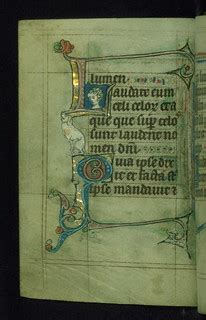 lumen.
Laudate eum
celi celoꝝ et a
que que sup̄ celos
sunt laudent no
men dn̄i
Quia ipse dix
it et facta st̄
ipse mandauit ⁊